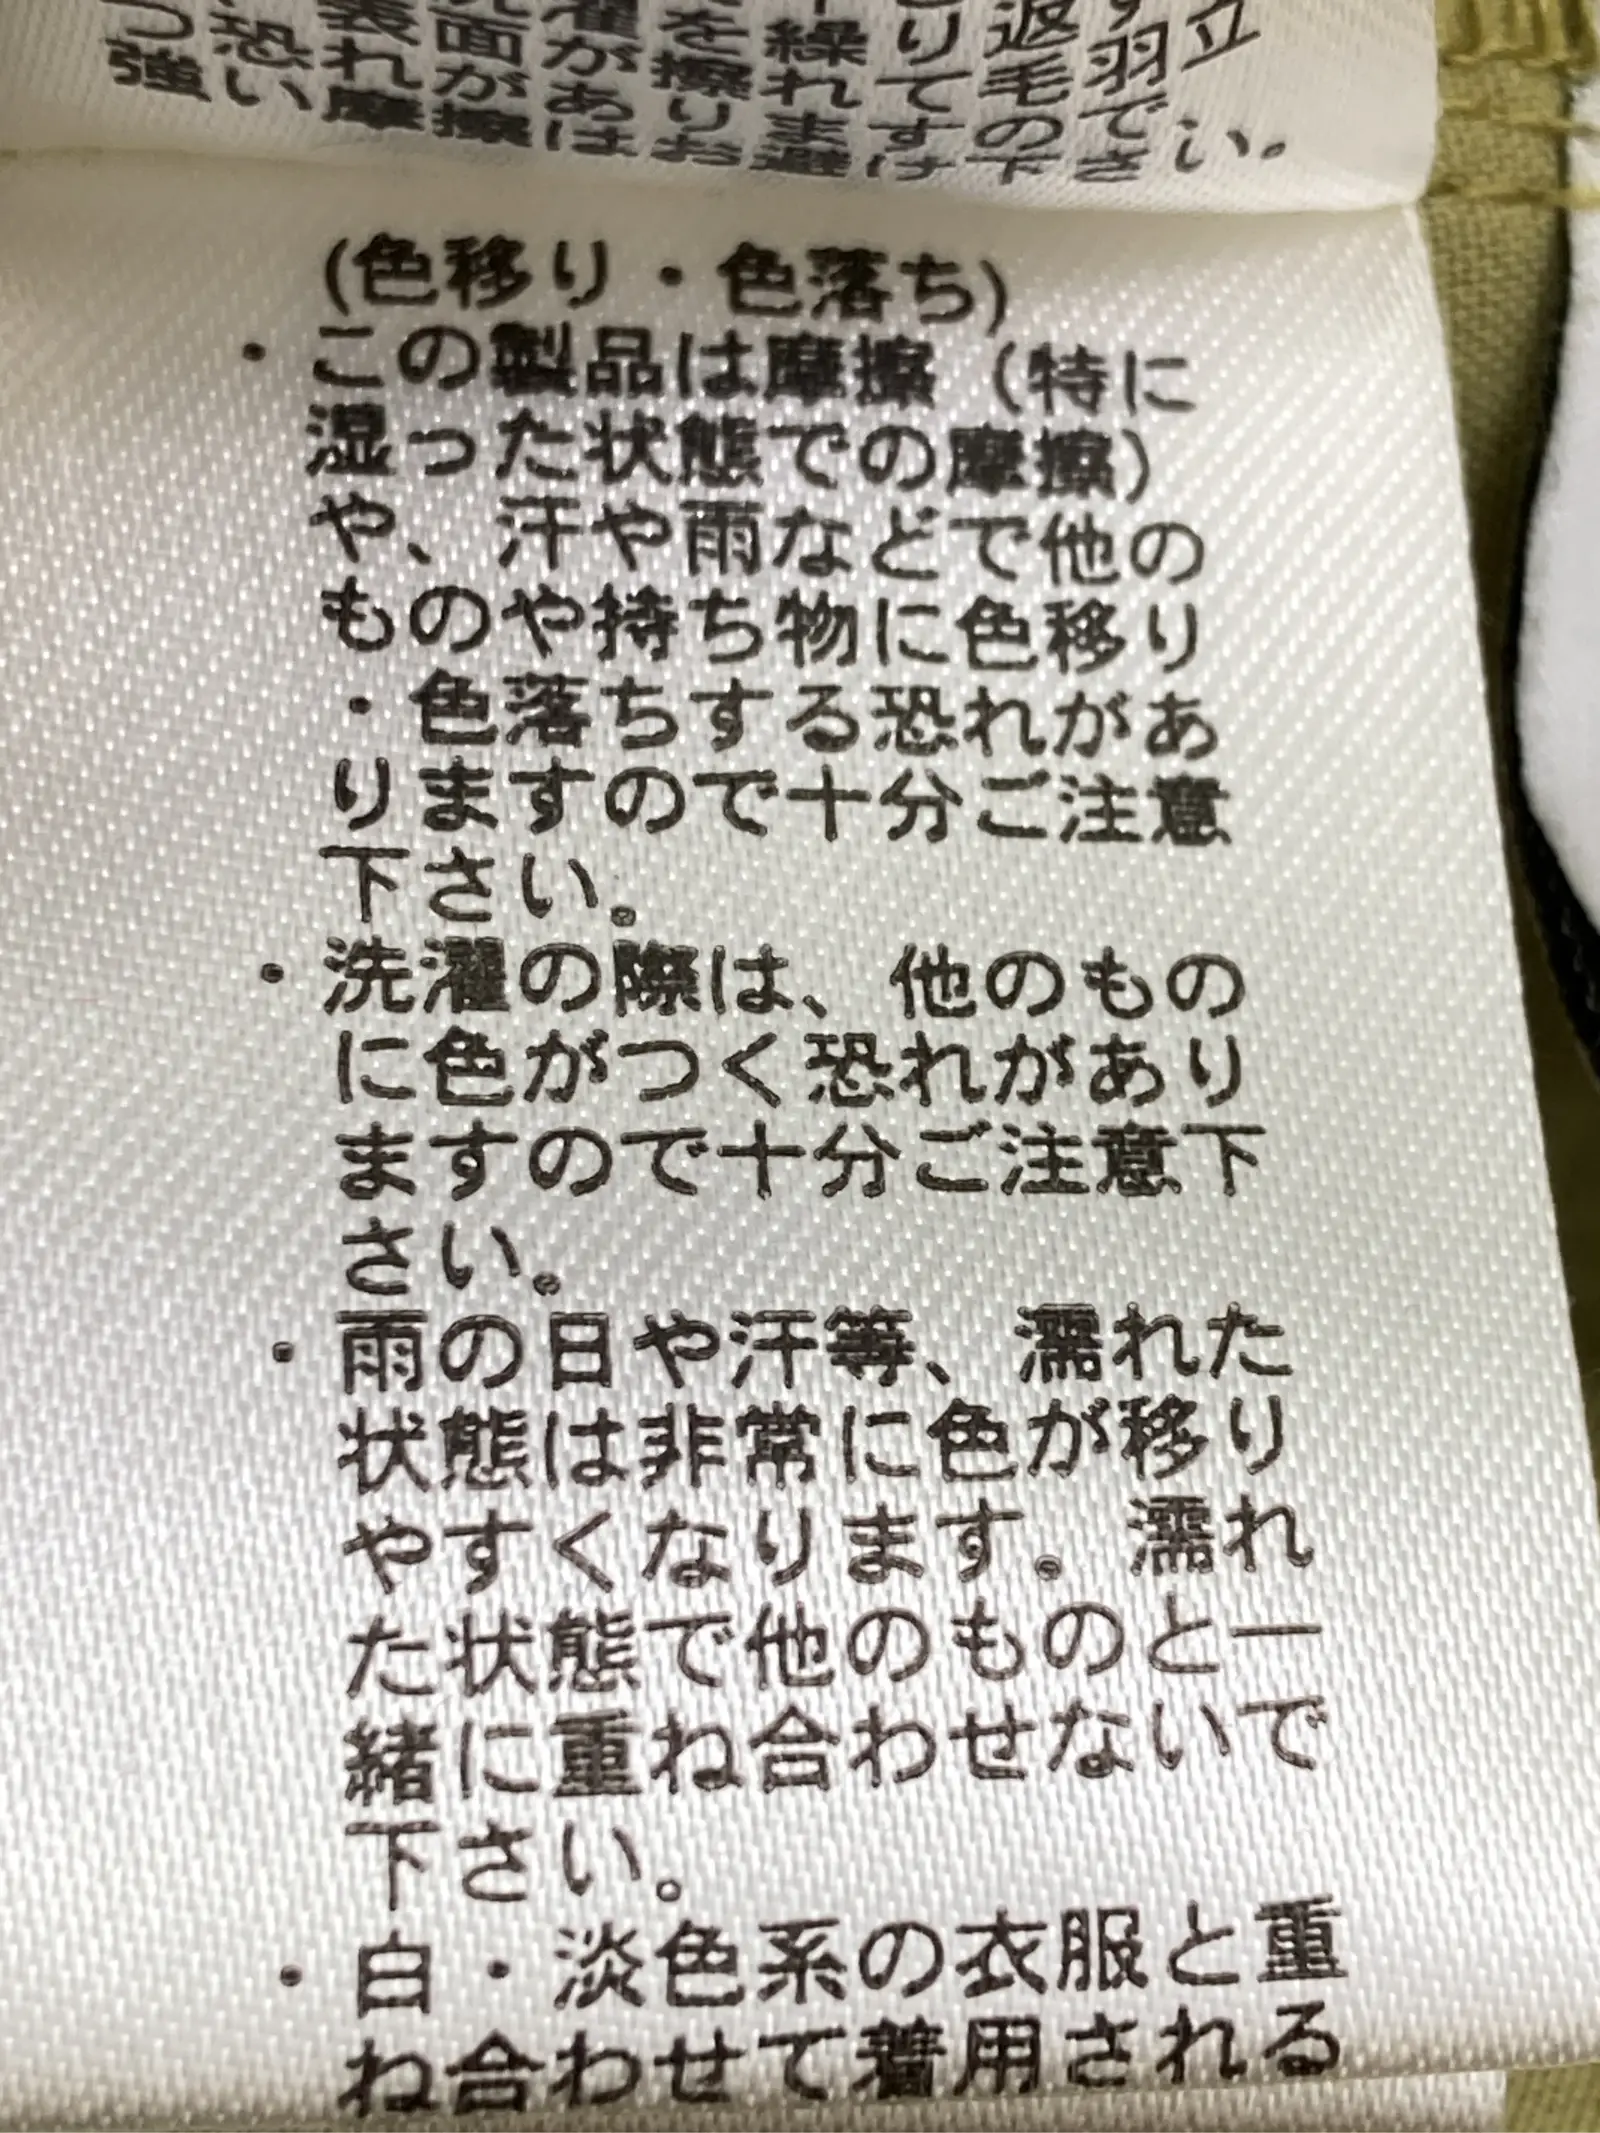 つ恐表洗濯を繰り返す羽立
強い摩擦はお避け下さい。
(色移り・色落ち)
・この製品は摩擦（特に
湿った状態での摩擦）
や、汗や雨などで他の
ものや持ち物に色移り
・色落ちする恐れがあ
りますので十分ご注意
下さい。
・洗濯の際は、他のもの
に色がつく恐れがあり
ますので十分ご注意下
さい。
・雨の日や汗等、濡れた
状態は非常に色が移り
やすくなります。濡れ
た状態で他のものと一
緒に重ね合わせないで
下さい。
・白・淡色系の衣服と重
ね合わせて着用される